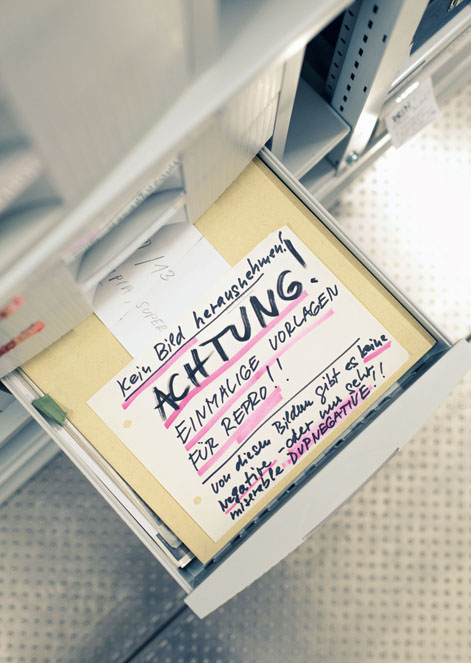 /13
SUPER
Kein Bild herausnehmen!
ACHTUNG!
EINMALIGE VORLAGEN
FÜR REPRO!!
von diesen Bildern gibt es keine
negative - oder nur sehr
miserable DUPNEGATIVE!!